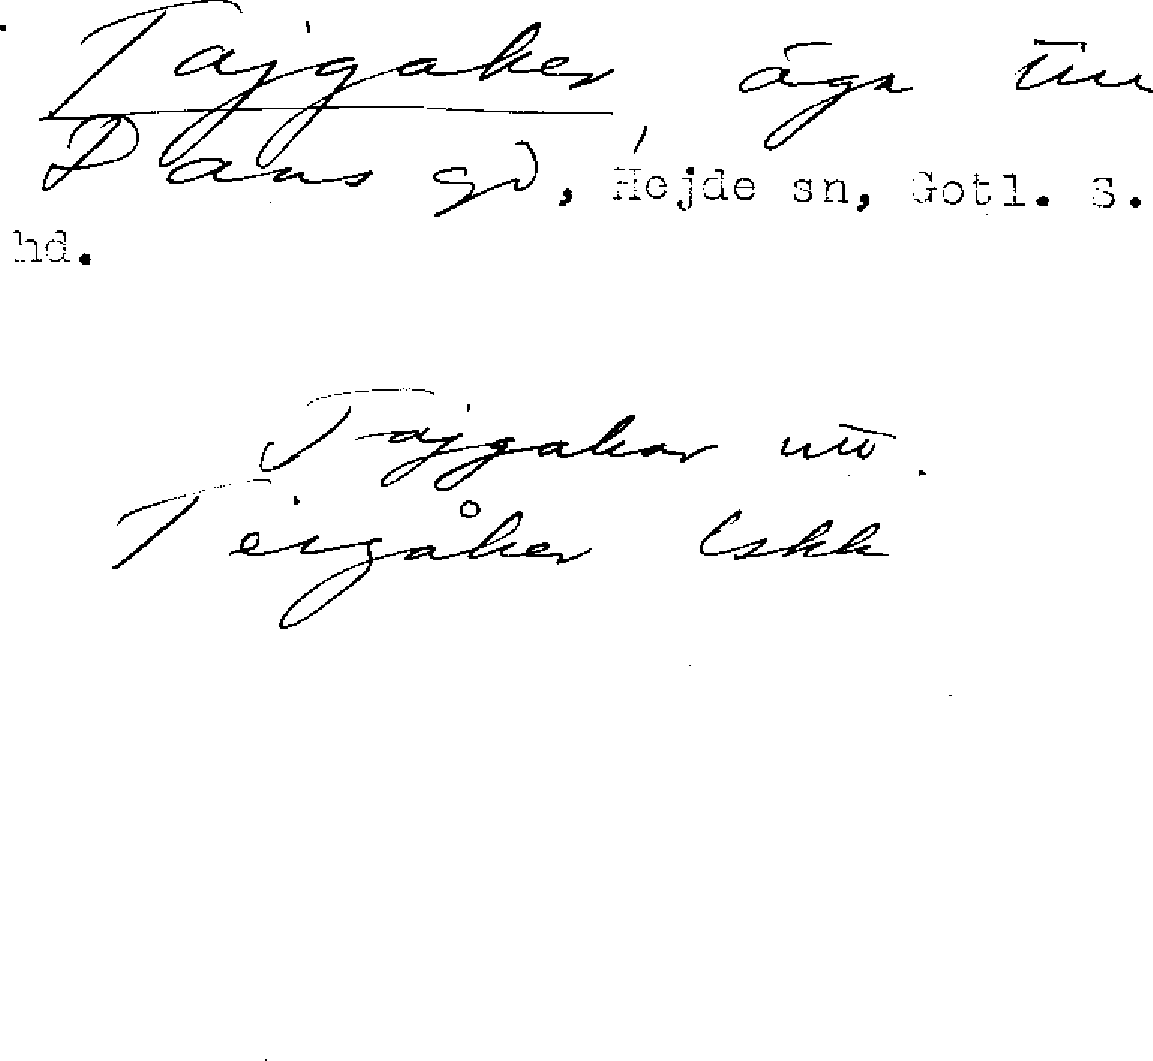 Tajgaker äga till
Dans gd, Hejde sn, Gotl. S.
hd.
Tajgakar utt.
Teigåker Lskk